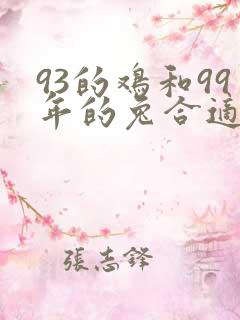 93的鸡和99
年的兔合適
張志鋒